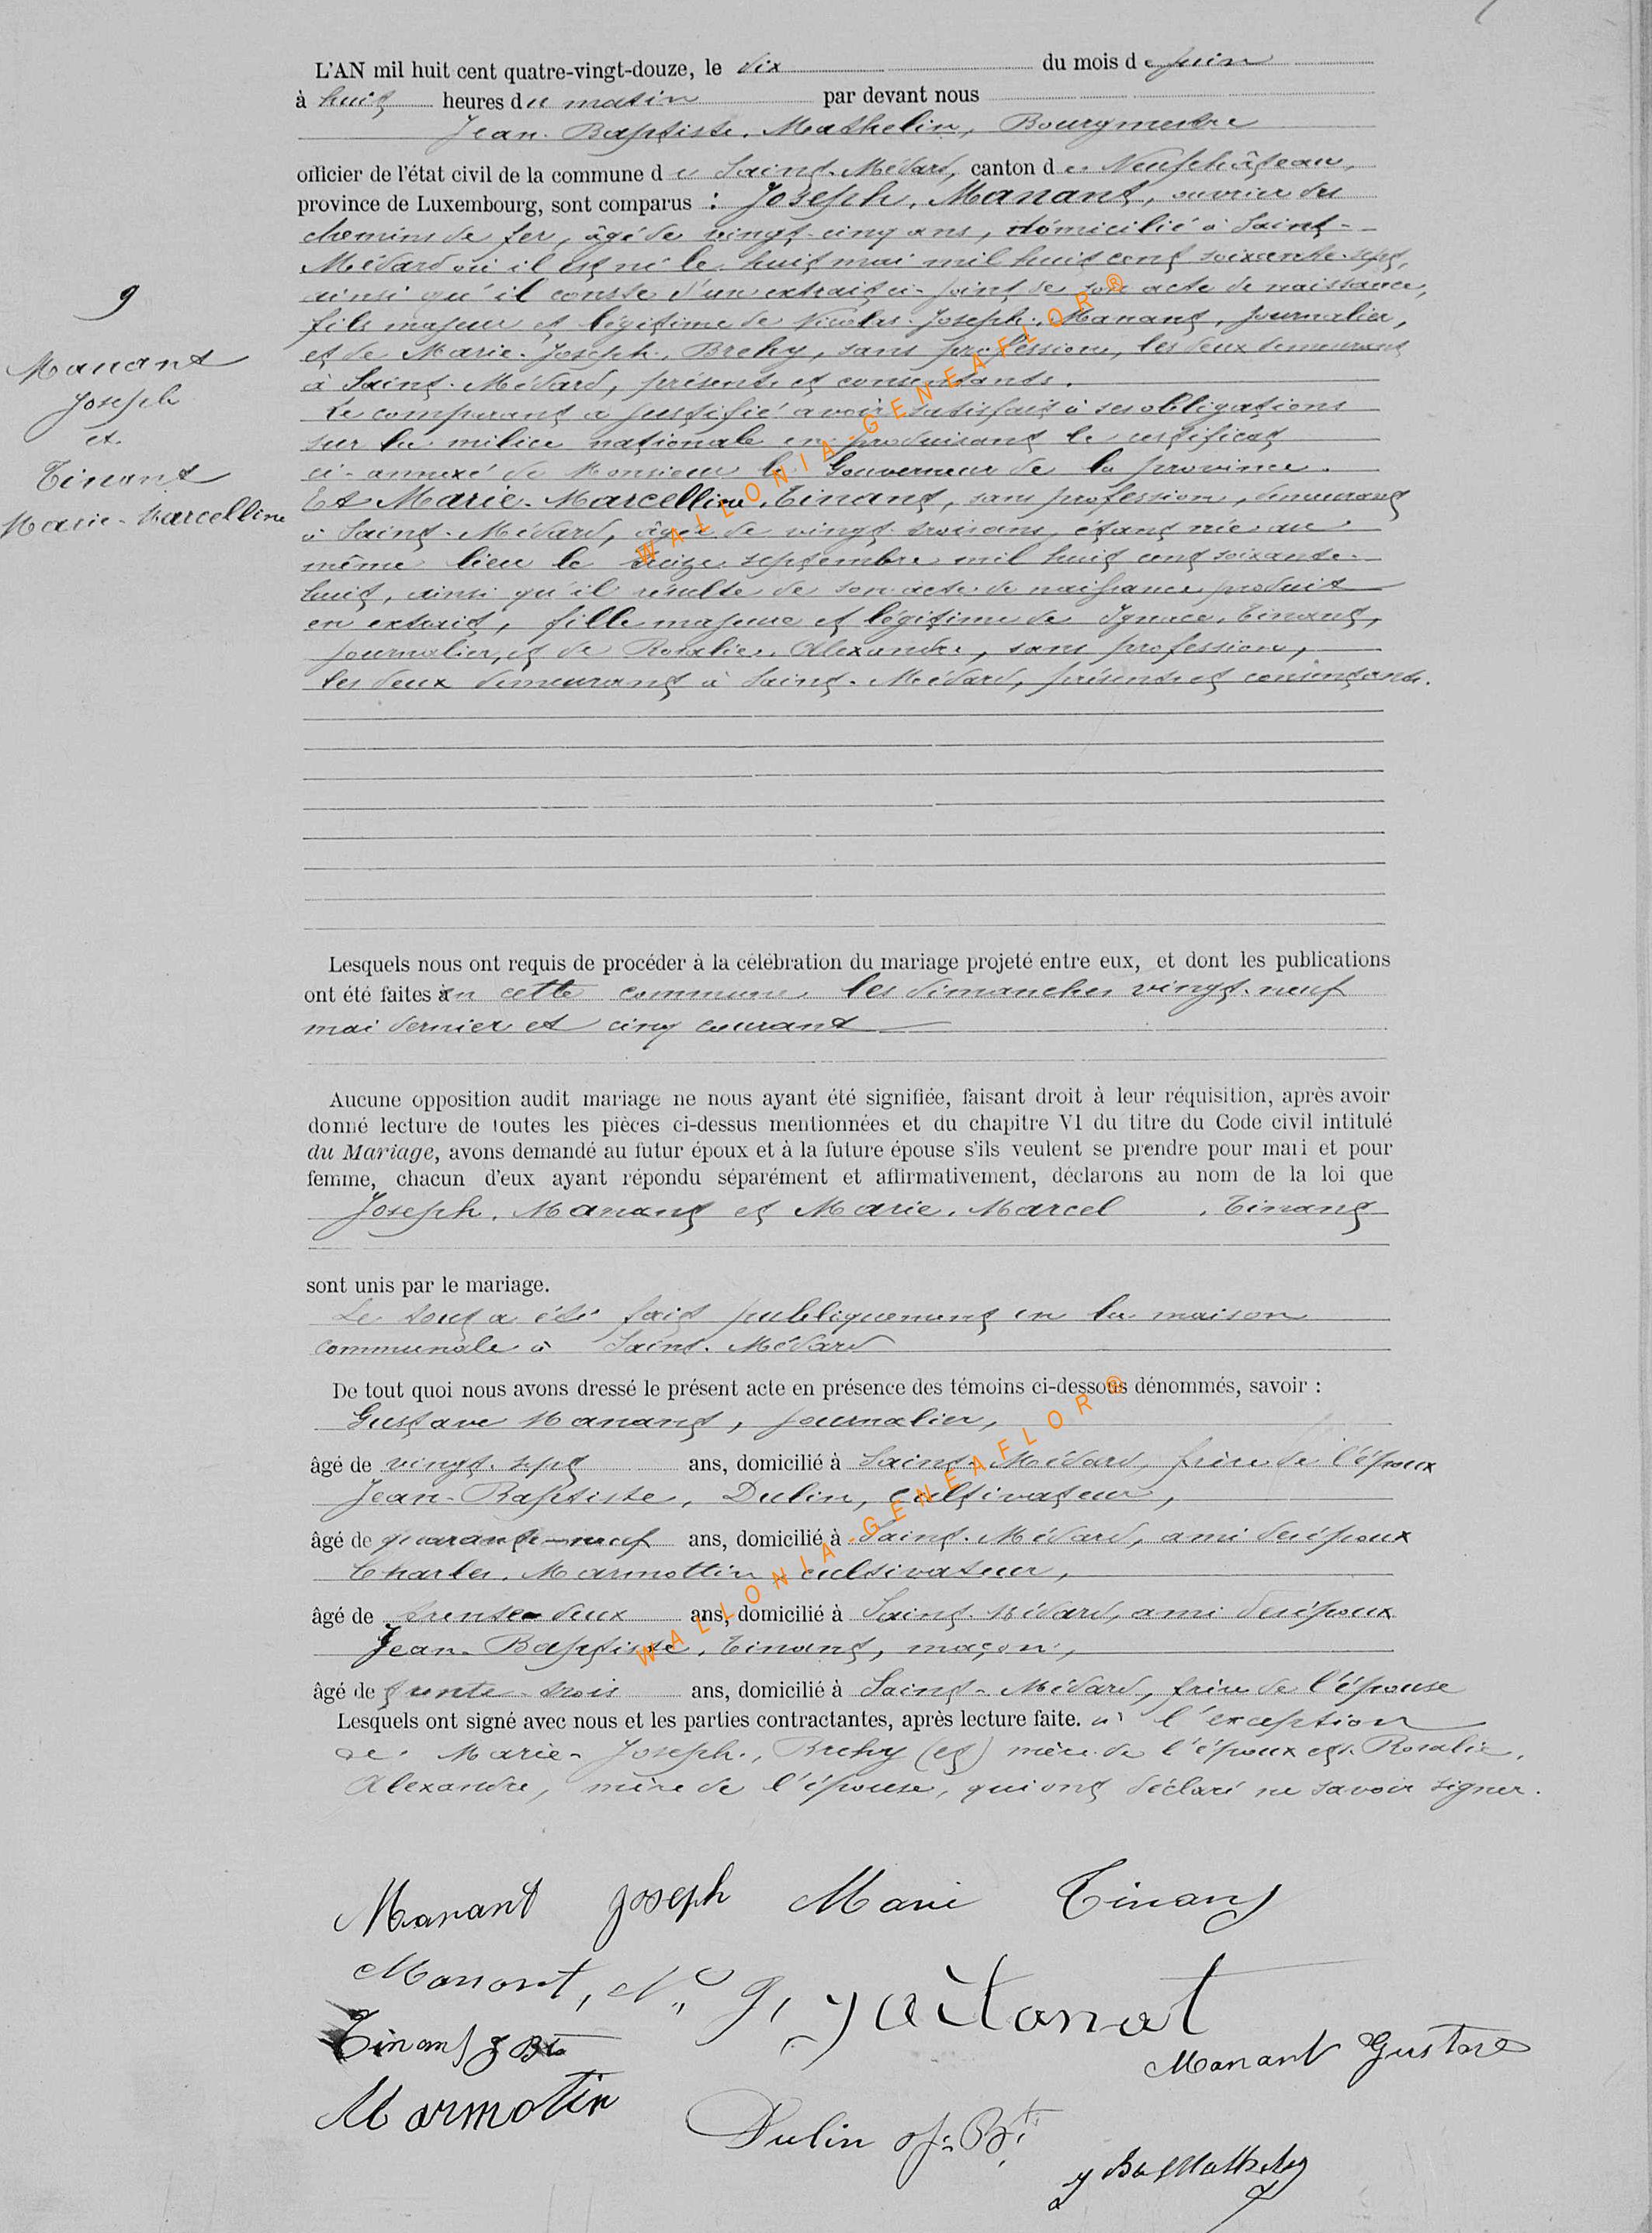 L'AN mil huit cent quatre-vingt-douze, le dix du mois de juin
à huit heures du matin par devant nous
Jean-Baptiste, Mathelin, Bourgmestre
officier de l'état civil de la commune de Saint-Médard, canton de Neufchâteau,
province de Luxembourg, sont comparus : Joseph, Manant, ouvrier des
chemins de fer, âgé de vingt-cinq ans, domicilié à Saint-
Médard où il est né le huit mai mil huit cent soixante-sept,
ainsi qu'il conste d'un extrait ci-joint de son acte de naissance,
fils majeur et légitime de Nicolas-Joseph, Manant, journalier,
et de Marie-Joseph, Brehy, sans profession, les deux demeurant
à Saint-Médard, présents et consentants.
Le comparant a justifié avoir satisfait à ses obligations
sur la milice nationale en produisant le certificat
ci-annexé de Monsieur le Gouverneur de la province.
Et Marie-Marcelline, Tinant, sans profession, demeurant
à Saint-Médard, âgée de vingt-trois ans, étant née au
même lieu le seize septembre mil huit cent soixante-
huit, ainsi qu'il résulte de son acte de naissance produit
en extrait, fille majeure et légitime de Ignace, Tinant,
journalier, et de Rosalie, Alexandre, sans profession,
les deux demeurant à Saint-Médard, présents et consentants.
9
Manant
Joseph
et
Tinant
Marie-Marcelline
Lesquels nous ont requis de procéder à la célébration du mariage projeté entre eux, et dont les publications
ont été faites en cette commune les dimanches vingt-neuf
mai dernier et cinq courant
Aucune opposition audit mariage ne nous ayant été signifiée, faisant droit à leur réquisition, après avoir
donné lecture de toutes les pièces ci-dessus mentionnées et du chapitre VI du titre du Code civil intitulé
du Mariage, avons demandé au futur époux et à la future épouse s'ils veulent se prendre pour mari et pour
femme, chacun d'eux ayant répondu séparément et affirmativement, déclarons au nom de la loi que
Joseph, Manant et Marie-Marcel , Tinant
sont unis par le mariage.
Le tout a été fait publiquement en la maison
communale à Saint-Médard
De tout quoi nous avons dressé le présent acte en présence des témoins ci-dessous dénommés, savoir :
Gustave Manant, journalier,
âgé de vingt-sept ans, domicilié à Saint-Médard, frère de l'époux
Jean-Baptiste, Dulin, cultivateur,
âgé de quarante-neuf ans, domicilié à Saint-Médard, ami des époux
Charles, Marmottin, cultivateur,
âgé de trente-deux ans, domicilié à Saint-Médard, ami des époux
Jean-Baptiste, Tinant, maçon,
âgé de trente-trois ans, domicilié à Saint-Médard, frère de l'épouse
Lesquels ont signé avec nous et les parties contractantes, après lecture faite. à l'exception
de Marie-Joseph, Brehy (et) mère de l'époux et Rosalie,
Alexandre, mère de l'épouse, qui ont déclaré ne savoir signer.
Manant Joseph Marie Tinant
Manant, N. J.
Tinant J Bte
Manant Gustave
Marmotin
Dulin J. Bte
WALLONIA-GENEAFLOR®
WALLONIA-GENEAFLOR®